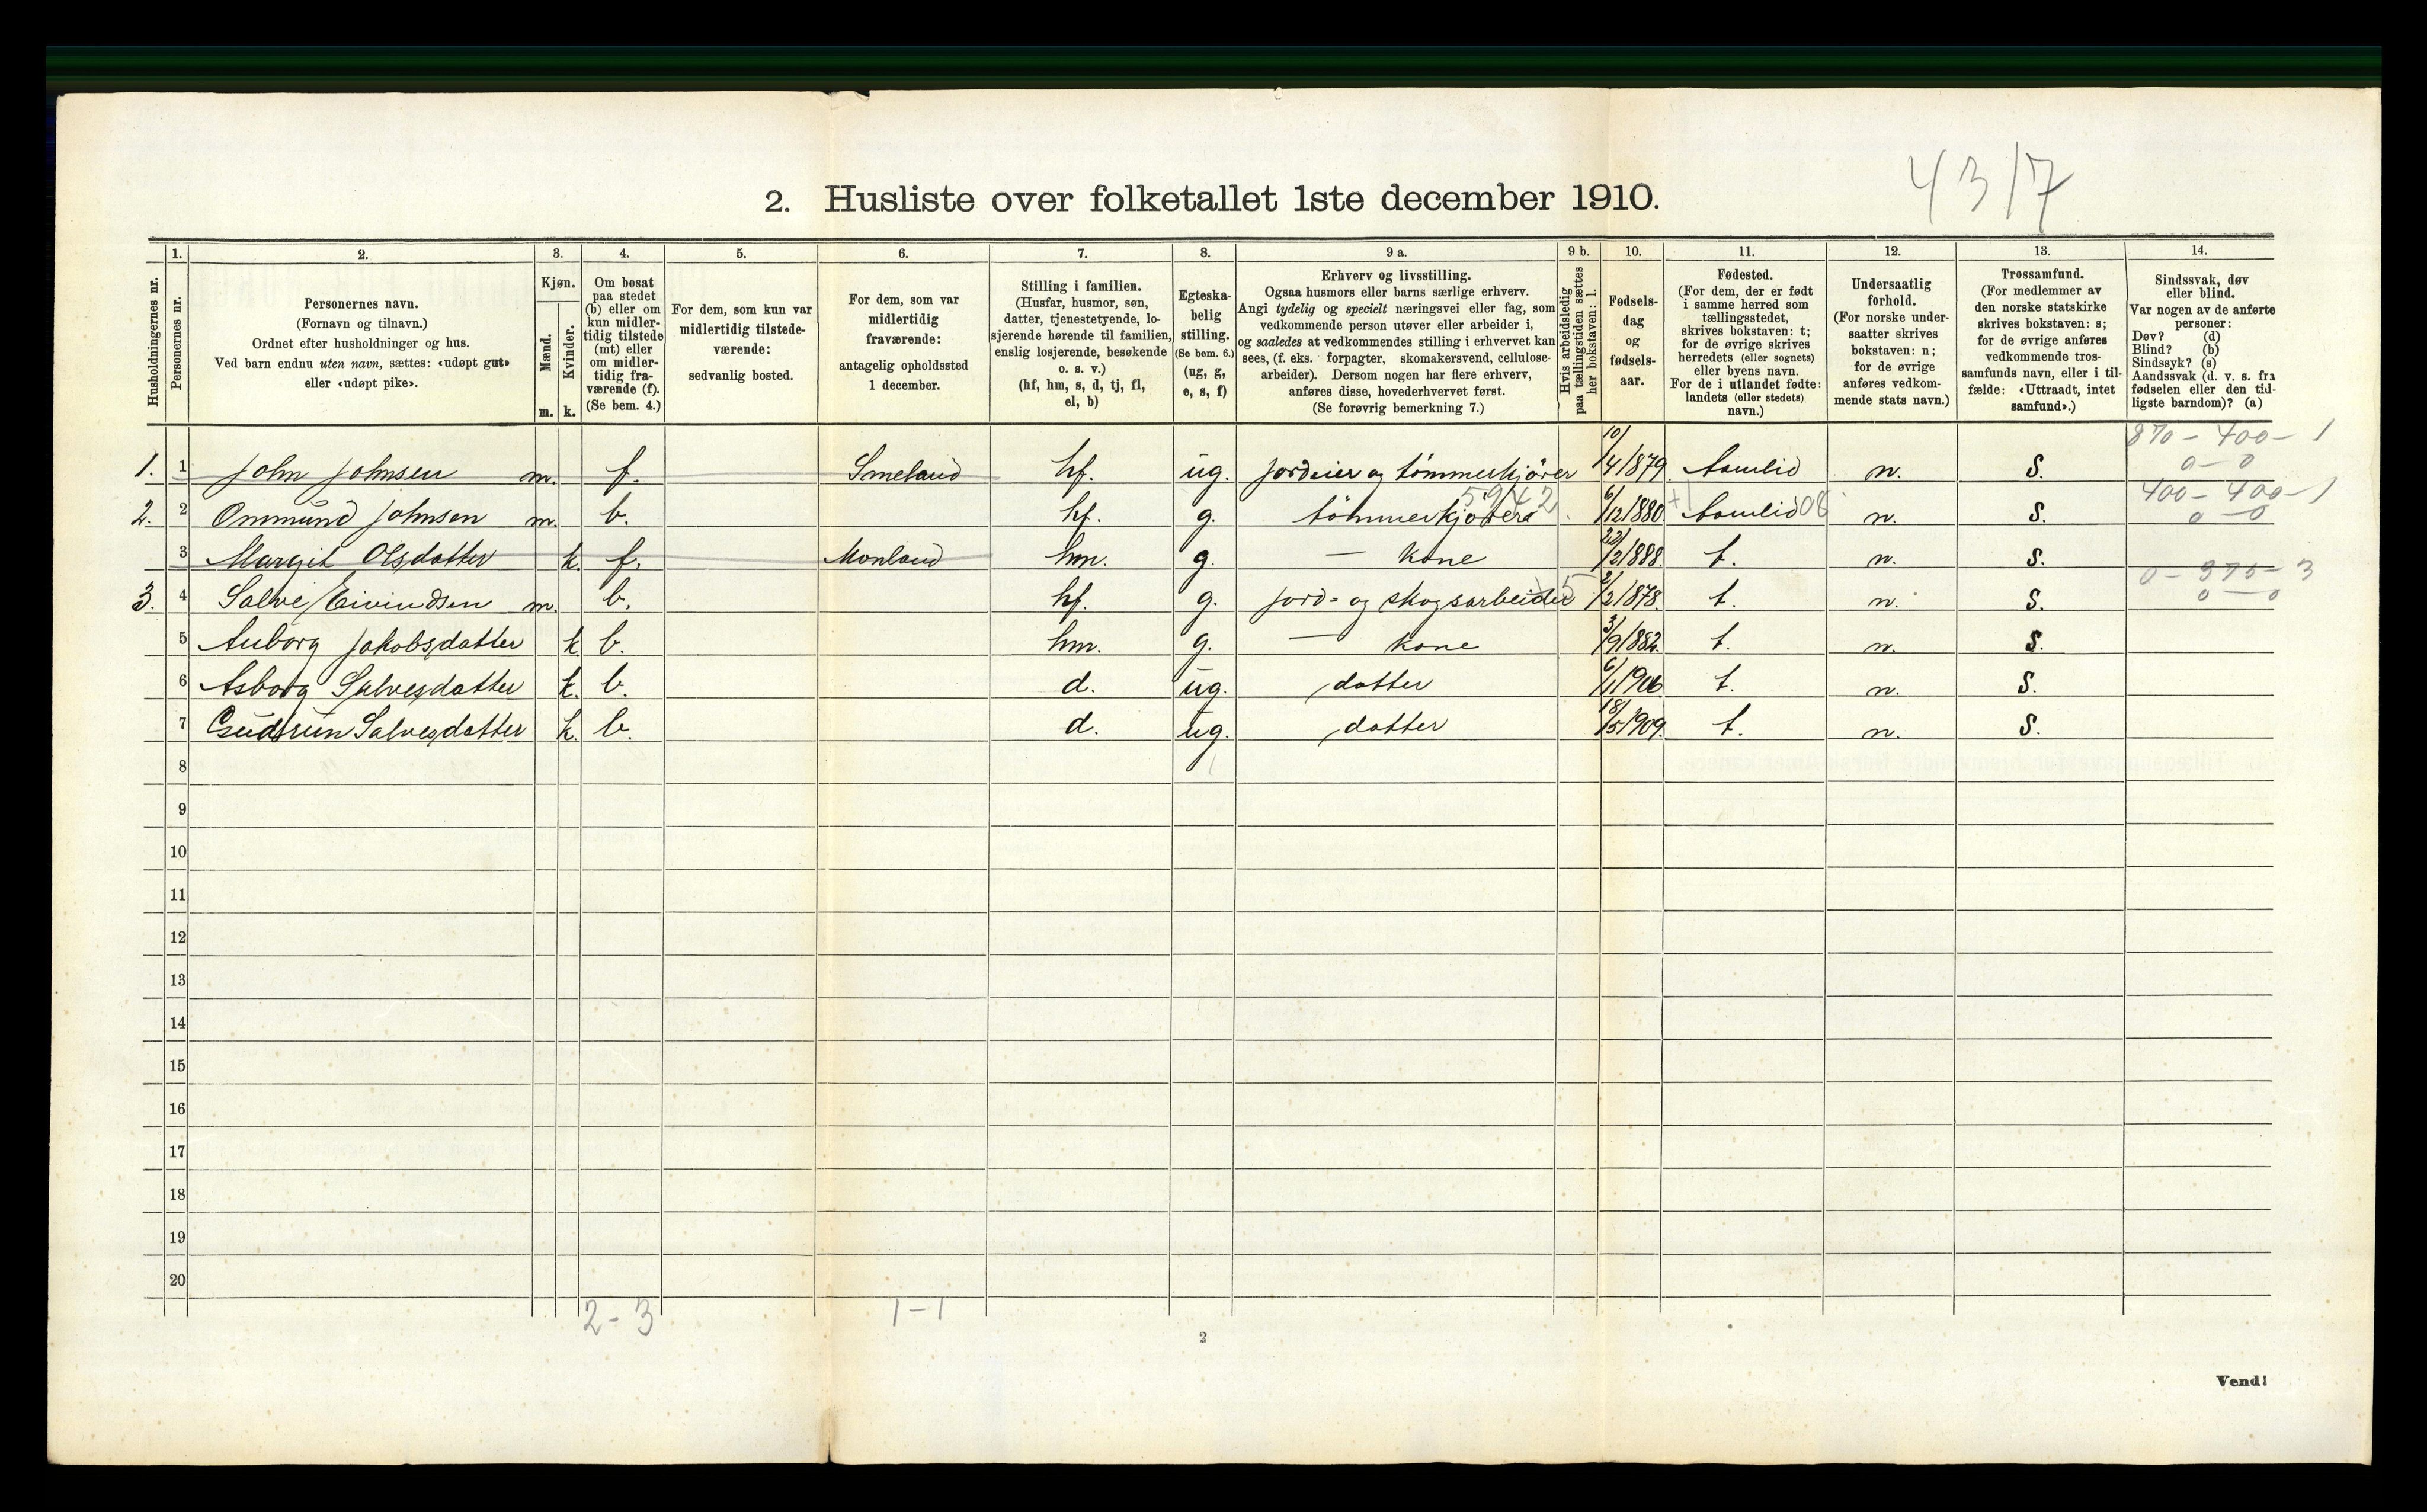 43/7
2. Husliste over folketallet 1ste december 1910.
Husholdningernes nr.
1. Personernes nr.
2. Personernes navn.
(Fornavn og tilnavn.)
Ordnet efter husholdninger og hus.
Ved barn endnu uten navn, sættes: «udøpt gut»
eller «udøpt pike».
3. Kjøn.
Mænd. m.
Kvinder. k.
4. Om bosat
paa stedet
(b) eller om
kun midler-
tidig tilstede
(mt) eller
om midler-
tidig fra-
værende (f).
(Se bem. 4.)
5. For dem, som kun var
midlertidig tilstede-
værende:
sedvanlig bosted.
6. For dem, som var
midlertidig
fraværende:
antagelig opholdssted
1 december.
7. Stilling i familien.
(Husfar, husmor, søn,
datter, tjenestetyende, lo-
sjerende hørende til familien,
enslig losjerende, besøkende
o. s. v.)
(hf, hm, s, d, tj, fl,
el, b)
8. Egteska-
belig
stilling.
(Se bem. 6.)
(ug, g,
e, s, f)
9 a. Erhverv og livsstilling.
Ogsaa husmors eller barns særlige erhverv.
Angi tydelig og specielt næringsvei eller fag, som
vedkommende person utøver eller arbeider i,
og saaledes at vedkommendes stilling i erhvervet kan
sees, (f. eks. forpagter, skomakersvend, cellulose-
arbeider). Dersom nogen har flere erhverv,
anføres disse, hovederhvervet først.
(Se forøvrig bemerkning 7.)
9 b. Hvis arbeidsledig
paa tællingstiden sættes
her bokstaven: l.
10. Fødsels-
dag
og
fødsels-
aar.
11. Fødested.
(For dem, der er født
i samme herred som
tællingsstedet,
skrives bokstaven: t;
for de øvrige skrives
herredets (eller sognets)
eller byens navn.
For de i utlandet fødte:
landets (eller stedets)
navn.)
12. Undersaatlig
forhold.
(For norske under-
saatter skrives
bokstaven: n;
for de øvrige
anføres vedkom-
mende stats navn.)
13. Trossamfund.
(For medlemmer av
den norske statskirke
skrives bokstaven: s;
for de øvrige anføres
vedkommende tros-
samfunds navn, eller i til-
fælde: «Uttraadt, intet
samfund».)
14. Sindssvak, døv
eller blind.
Var nogen av de anførte
personer:
Døv? (d)
Blind? (b)
Sindssyk? (s)
Aandssvak (d. v. s. fra
fødselen eller den tid-
ligste barndom)? (a)
1. 1 John Johnsen m. f. Smeland hf. ug. jordeier og tømmerkjører 10/4 1879. Aamlid n. S. 870 - 400 - 1
0 - 0
2. 2 Ommund Johnsen m. b. hf. g. tømmerkjører 6/12 1880 Aamlid 08 n. S. 400 - 400 - 1
0 - 0
3 Margit Olsdatter k. f. Monland hm. g. — kone 22/2 1888. t. n. S.
3. 4 Salve Eivindsen m. b. hf. g. jord- og skogsarbeider 2/2 1878. t. n. S. 0 - 375 - 3
0 - 0
5 Auborg Jakobsdatter k. b. hm. g. — kone 3/9 1882. t. n. S.
6 Asborg Salvesdatter k. b. d. ug. datter 6/1 1906 t. n. S.
7 Gudrun Salvesdatter k. b. d. ug. datter 18/5 1909. t. n. S.
8
9
10
11
12
13
14
15
16
17
18
19
20
2 - 3 1 - 1
2
Vend!